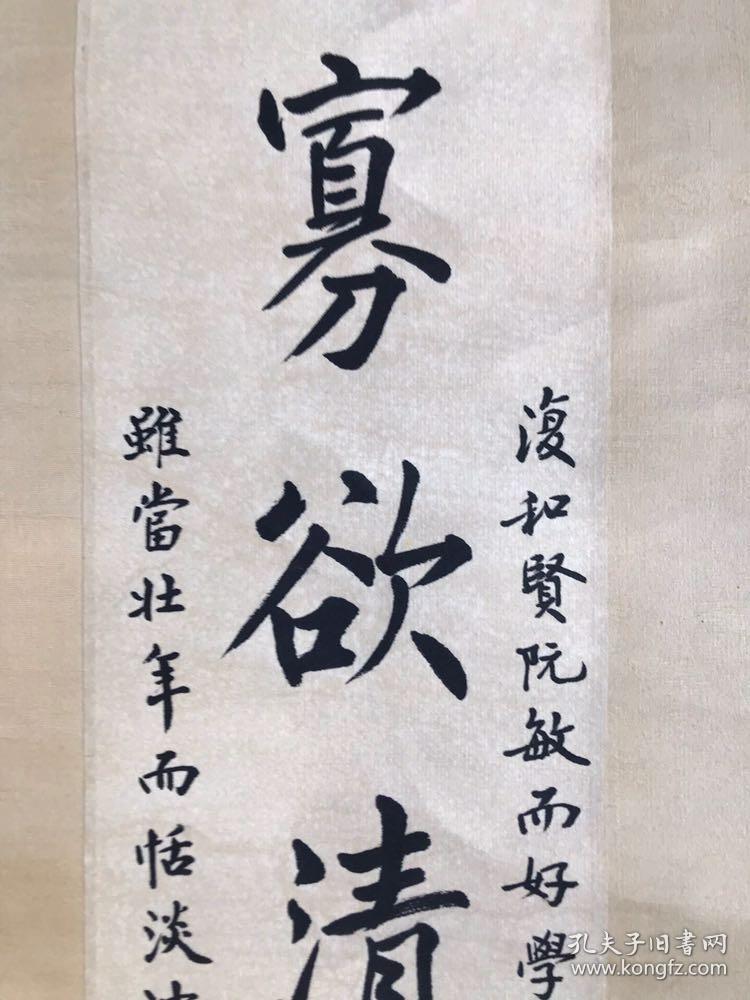 復和賢阮敏而好學
寡欲清
雖當壯年而恬淡
孔夫子旧書网
www.kongfz.com